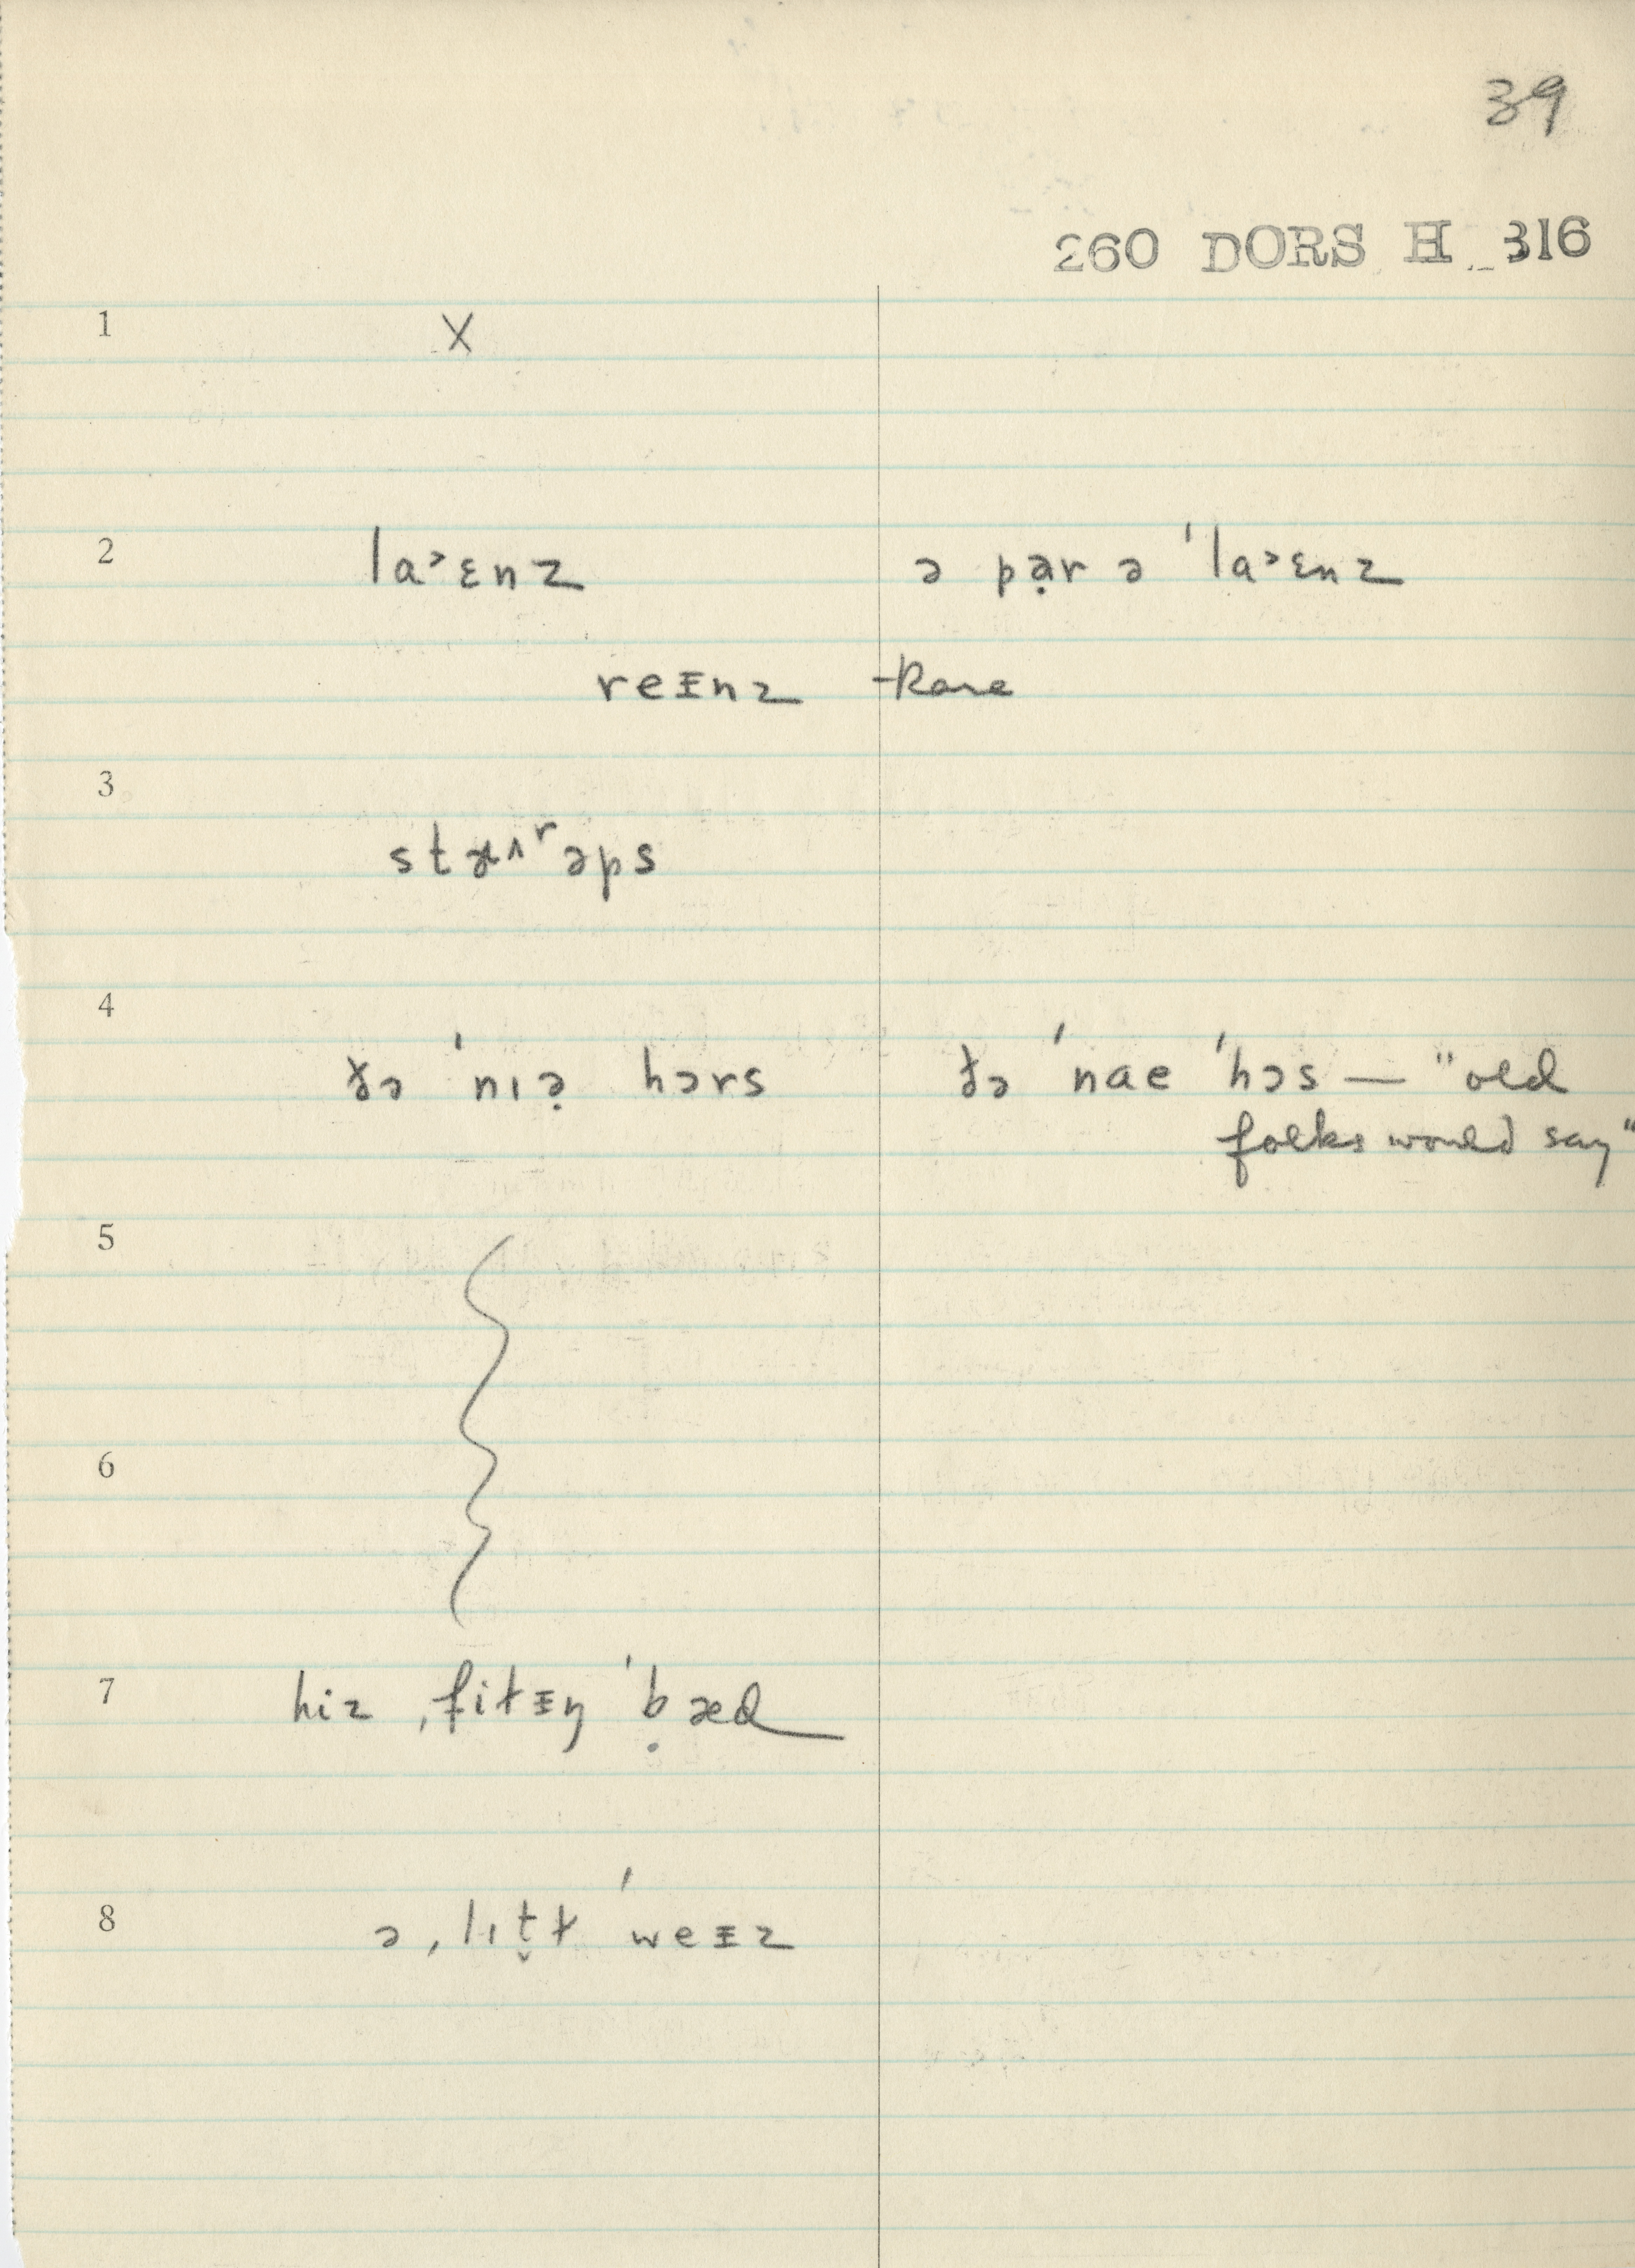 39
260 DORS H 316
1 X
2 la˃ɛnz ə pə̣r ə ˈla˃ɛnz
reᵻnz —Rare
3 stæ˄ʳəps
4 ðə ˈnɪə̣ hɔrs ðə ˈnae ˈhɔs — "old
folks would say"
5
6
7 hiz ˌfiɫᵻŋ ˈḅæd
8 ə ˌlɪt̬ɫ ˈweᵻz